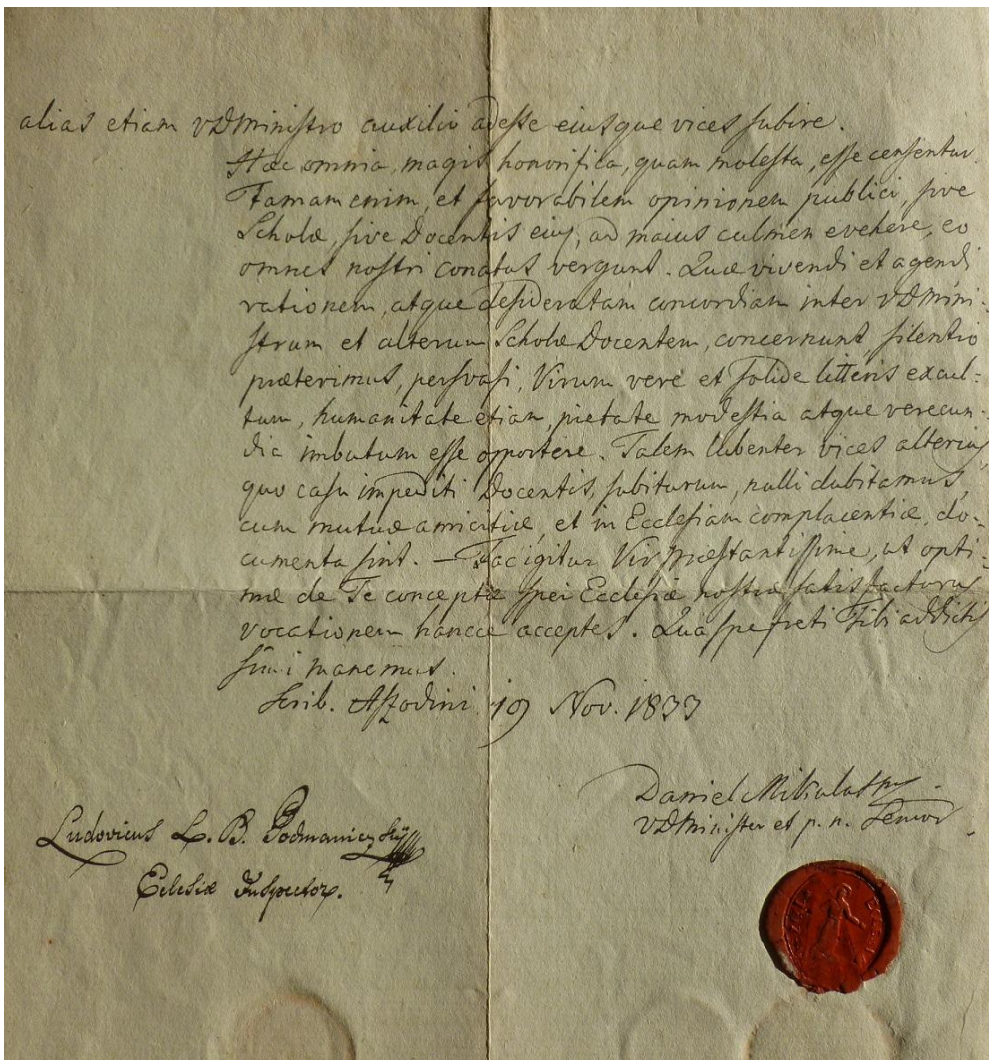 alias etiam VDMinistro auxilio adesse eiusque vices subire.
Haec omnia, magis honorifica, quam molesta, esse censentur.
Famam enim, et favorabilem opinionem publici, sive
Scholæ, sive Docentis eius, ad maius culmen evehere, eo
omnes nostri conatus vergunt. Quæ vivendi et agendi
rationem, atque desideratam concordiam inter VDMini-
strum et alterum Scholæ Docentem, concernunt, silentio
præterimus, persvasi, Virum vere et solide litteris excul-
tum, humanitate etiam, pietate modestia atque verecun-
dia imbutum esse opportere. Talem lubenter vices alterius
quo casu impediti Docentis, subiturum, nulli dubitamus,
cum mutuæ amicitiæ, et in Ecclesiam complacentiæ, do-
cumenta sint. — Fac igitur Vir Præstantissime, ut opti-
mæ de Te conceptæ spei Ecclesiæ nostræ satisfacturus
vocationem hancce acceptes. Qua spe freti Tibi addictis
simi manemus.
Scrib. Aszodini 19 Nov. 1833
Daniel Mikulas
VDMinister et p. n. Senior
Ludovicus L. B. Podmaniczky
Eclesiæ Inspector.